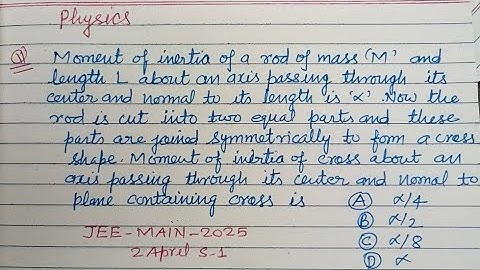 Physics
Q Moment of inertia of a rod of mass 'M' and
length L about an axis passing through its
center and normal to its length is 'α'. Now the
rod is cut into two equal parts and these
parts are joined symmetrically to form a cross
shape. Moment of inertia of cross about an
axis passing through its center and normal to
plane containing cross is
A α/4
B α/2
C α/8
D α
JEE-MAIN-2025
2 April S-1